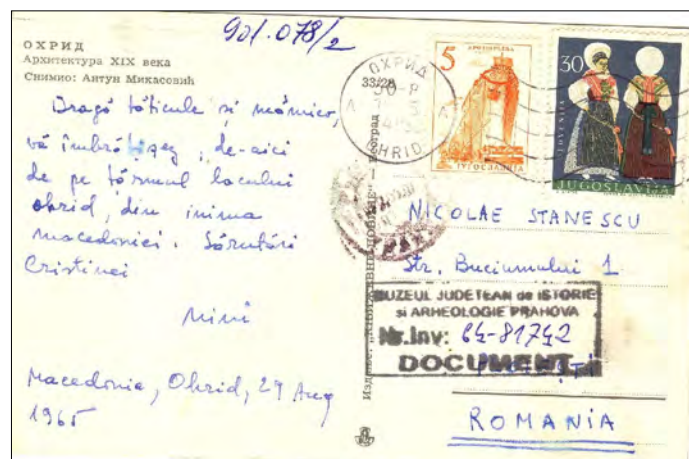 901.078/2
ОХРИД
Архитектура XIX века
Снимио: Антун Микасовић
Dragă tăticule și mămico,
vă îmbrățișez, de-aici
de pe țărmul lacului
ohrid, din inima
macedoniei. Sărutări
Cristinei
Mini
Macedonia, Ohrid, 29 Aug
1965
33/28
ОХРИД
OHRID
5
ЈУГОСЛАВИЈА
30
SLOVENIJA
JUGOSLAVIJA
NICOLAE STANESCU
Str. Buciumului 1
MUZEUL JUDEȚEAN de ISTORIE
si ARHEOLOGIE PRAHOVA
Nr.Inv: 64-81742
DOCUMENT
ROMANIA